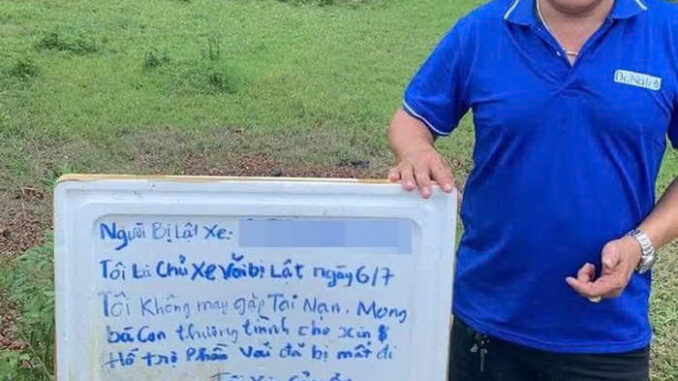 Dr.
Người Bị Lật Xe:
Tôi Là Chủ Xe Vải bị Lật ngày 6/7
Tôi Không may gặp Tai Nạn. Mong
bà Con thương tình cho xin $
Hỗ trợ Phần Vải đã bị mất đi